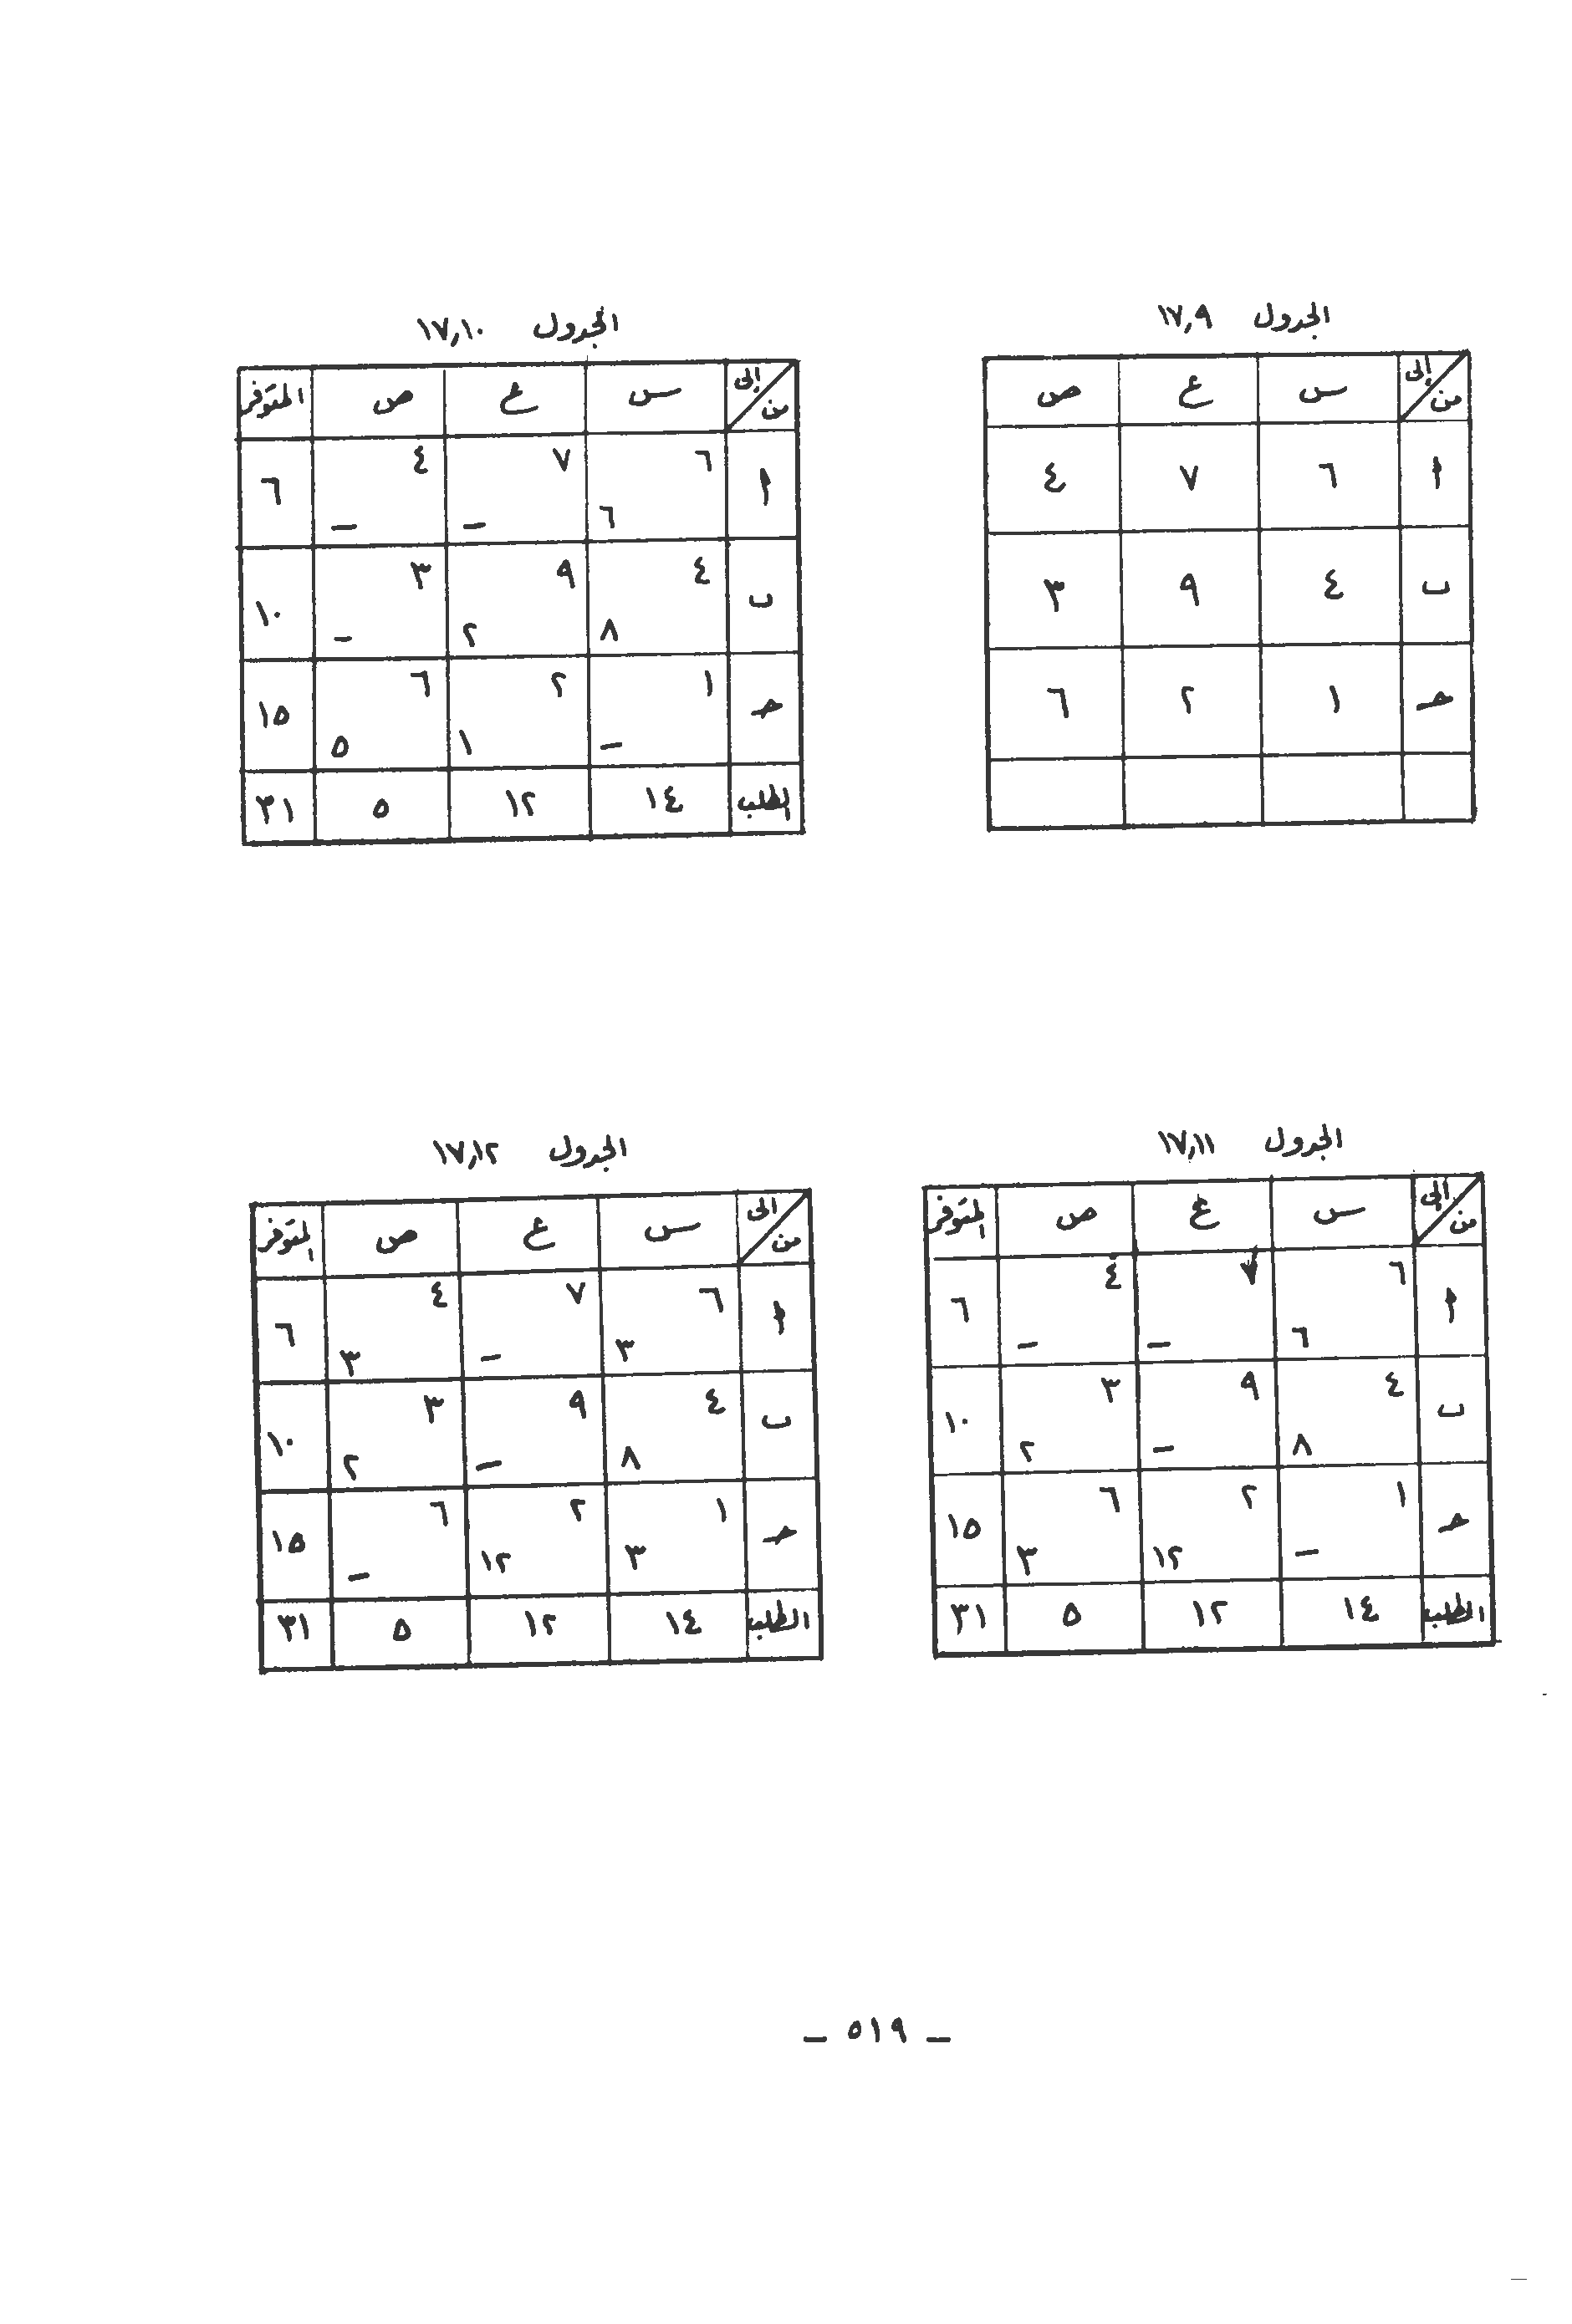 الجدول ١٧,٩
إلى من س ع ص
أ ٦ ٧ ٤
ب ٤ ٩ ٣
حـ ١ ٢ ٦
الجدول ١٧,١٠
إلى من س ع ص المتوفر
أ ٦ ٧ ٤
٦ – – ٦
ب ٤ ٩ ٣
٨ ٢ – ١٠
حـ ١ ٢ ٦
– ١ ٥ ١٥
الطلب ١٤ ١٢ ٥ ٣١
الجدول ١٧,١١
إلى من س ع ص المتوفر
أ ٦ ٧ ٤
٦ – – ٦
ب ٤ ٩ ٣
٨ – ٢ ١٠
حـ ١ ٢ ٦
– ١٢ ٣ ١٥
الطلب ١٤ ١٢ ٥ ٣١
الجدول ١٧,١٢
الى من س ع ص المتوفر
أ ٦ ٧ ٤
٣ – ٣ ٦
ب ٤ ٩ ٣
٨ – ٢ ١٠
حـ ١ ٢ ٦
٣ ١٢ – ١٥
الطلب ١٤ ١٢ ٥ ٣١
– ٥١٩ –